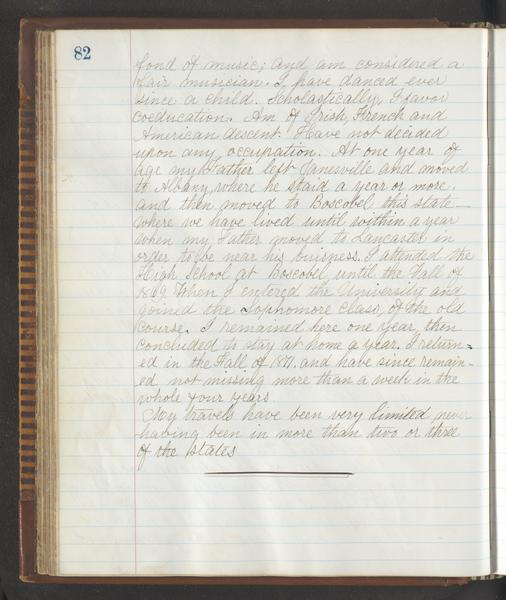 82
fond of music; and am considered a
fair musician. I have danced ever
since a child. Scholastically, I favor
coeducation. Am of Irish, French and
American descent. Have not decided
upon any occupation. At one year of
age my Father left Janesville and moved
to Albany, where he staid a year or more.
and then moved to Boscobel this state
where we have lived until within a year
when my Father moved to Lancaster in
order to be near his buisness. I attended the
High School at Boscobel until the Fall of
1869 When I entered the University and
joined the Sophomore Class, of the old
course. I remained here one year, then
concluded to stay at home a year. I return=
ed in the Fall of 1871. and have since remain-
ed not missing more than a week in the
whole four years
My travels have been very limited never
having been in more than two or three
of the states